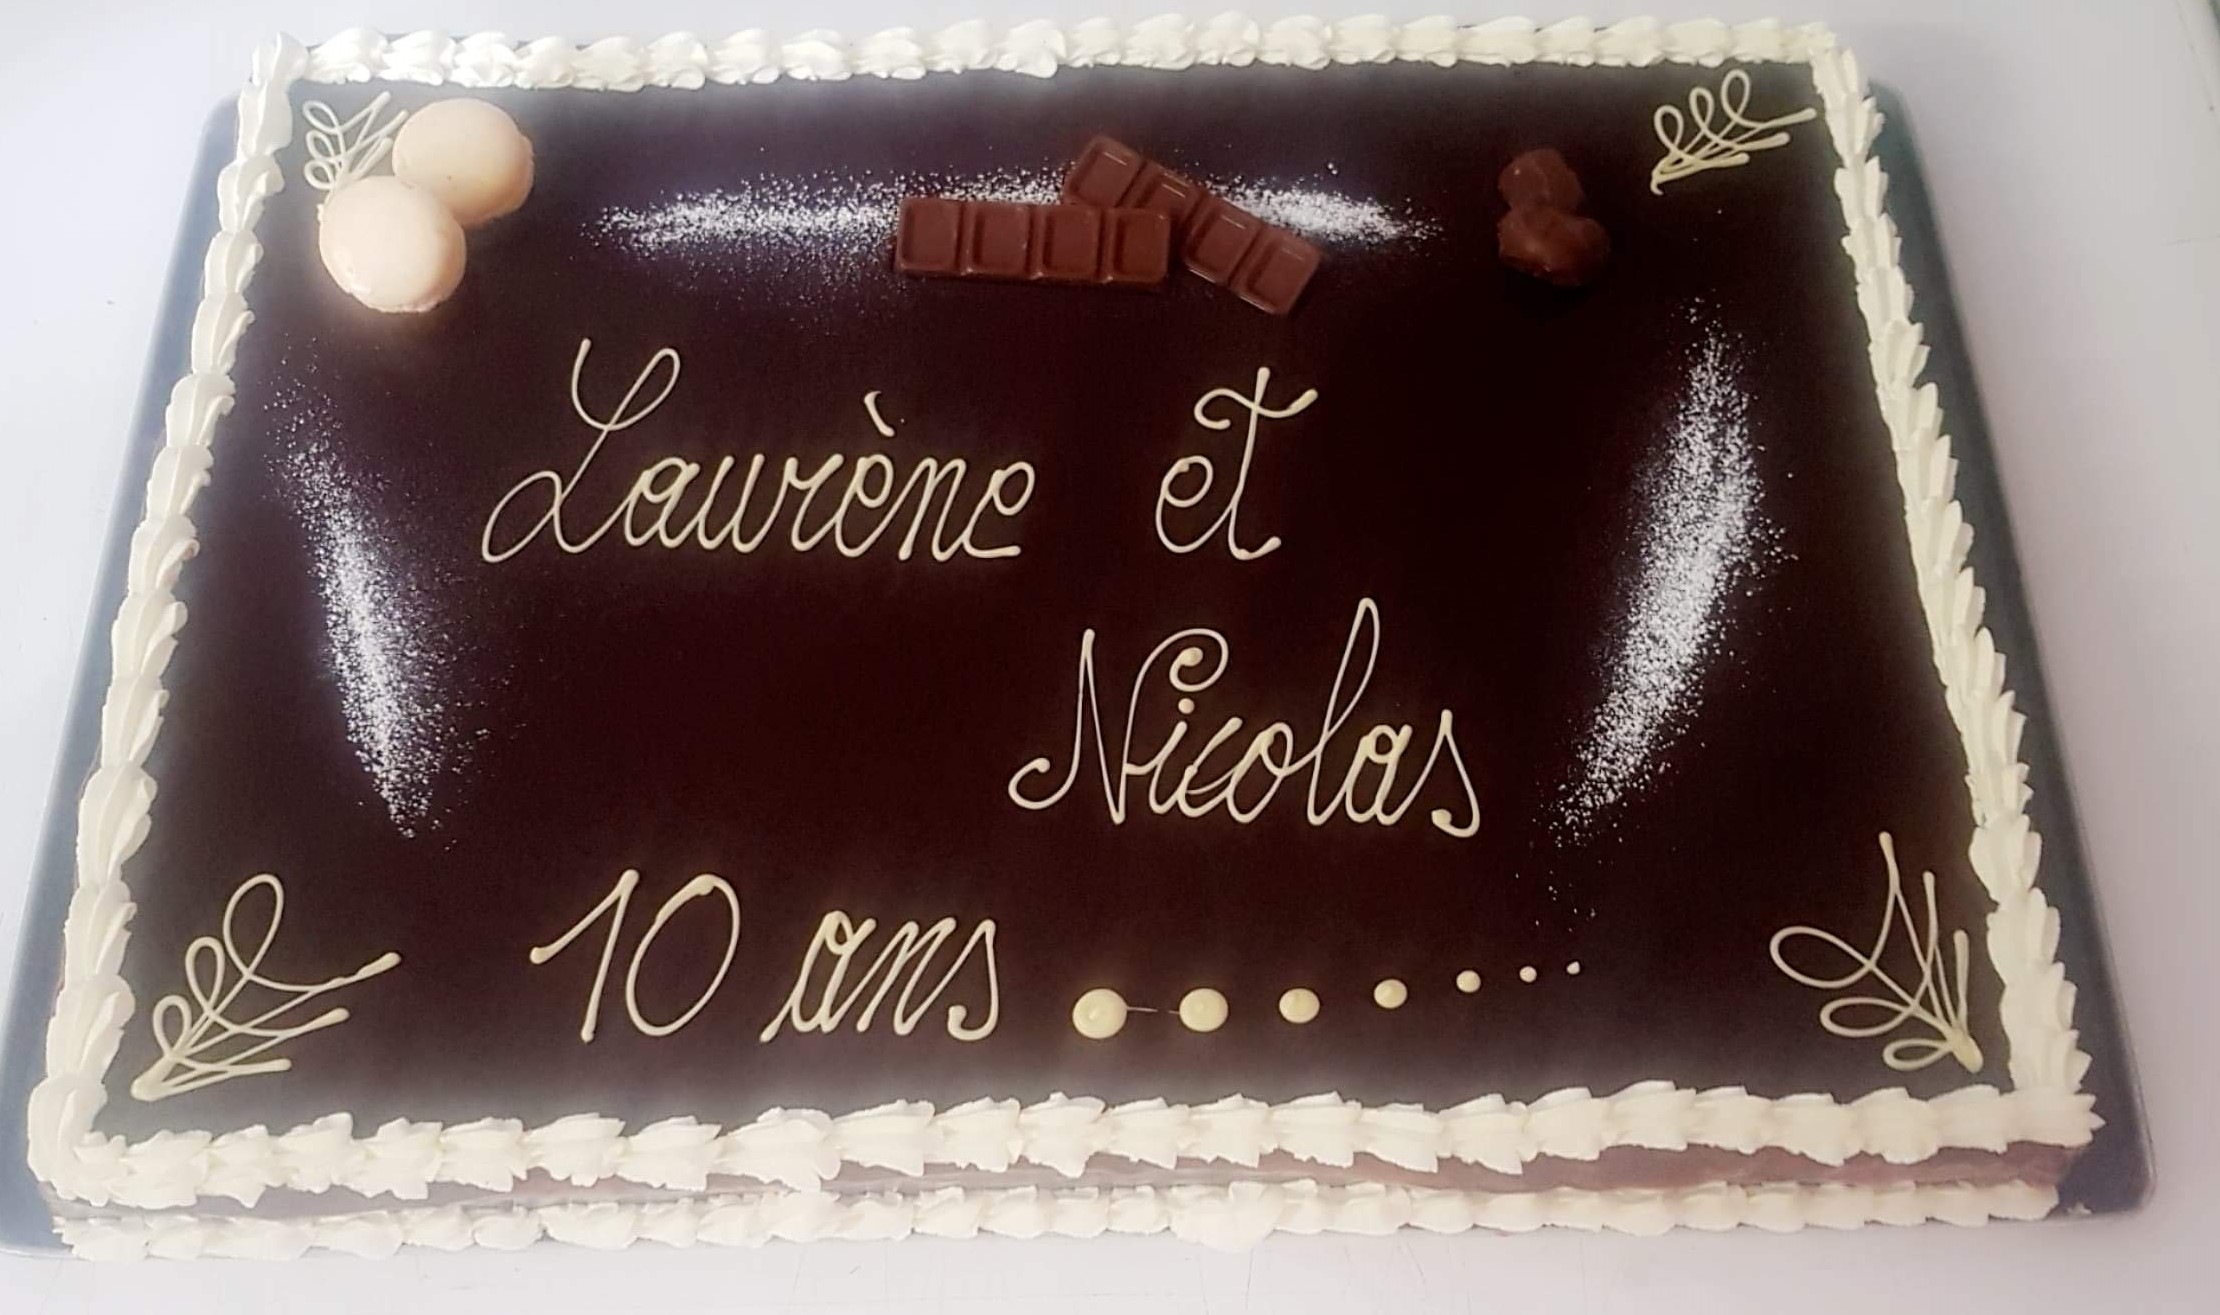 Laurène et
Nicolas
10 ans.......